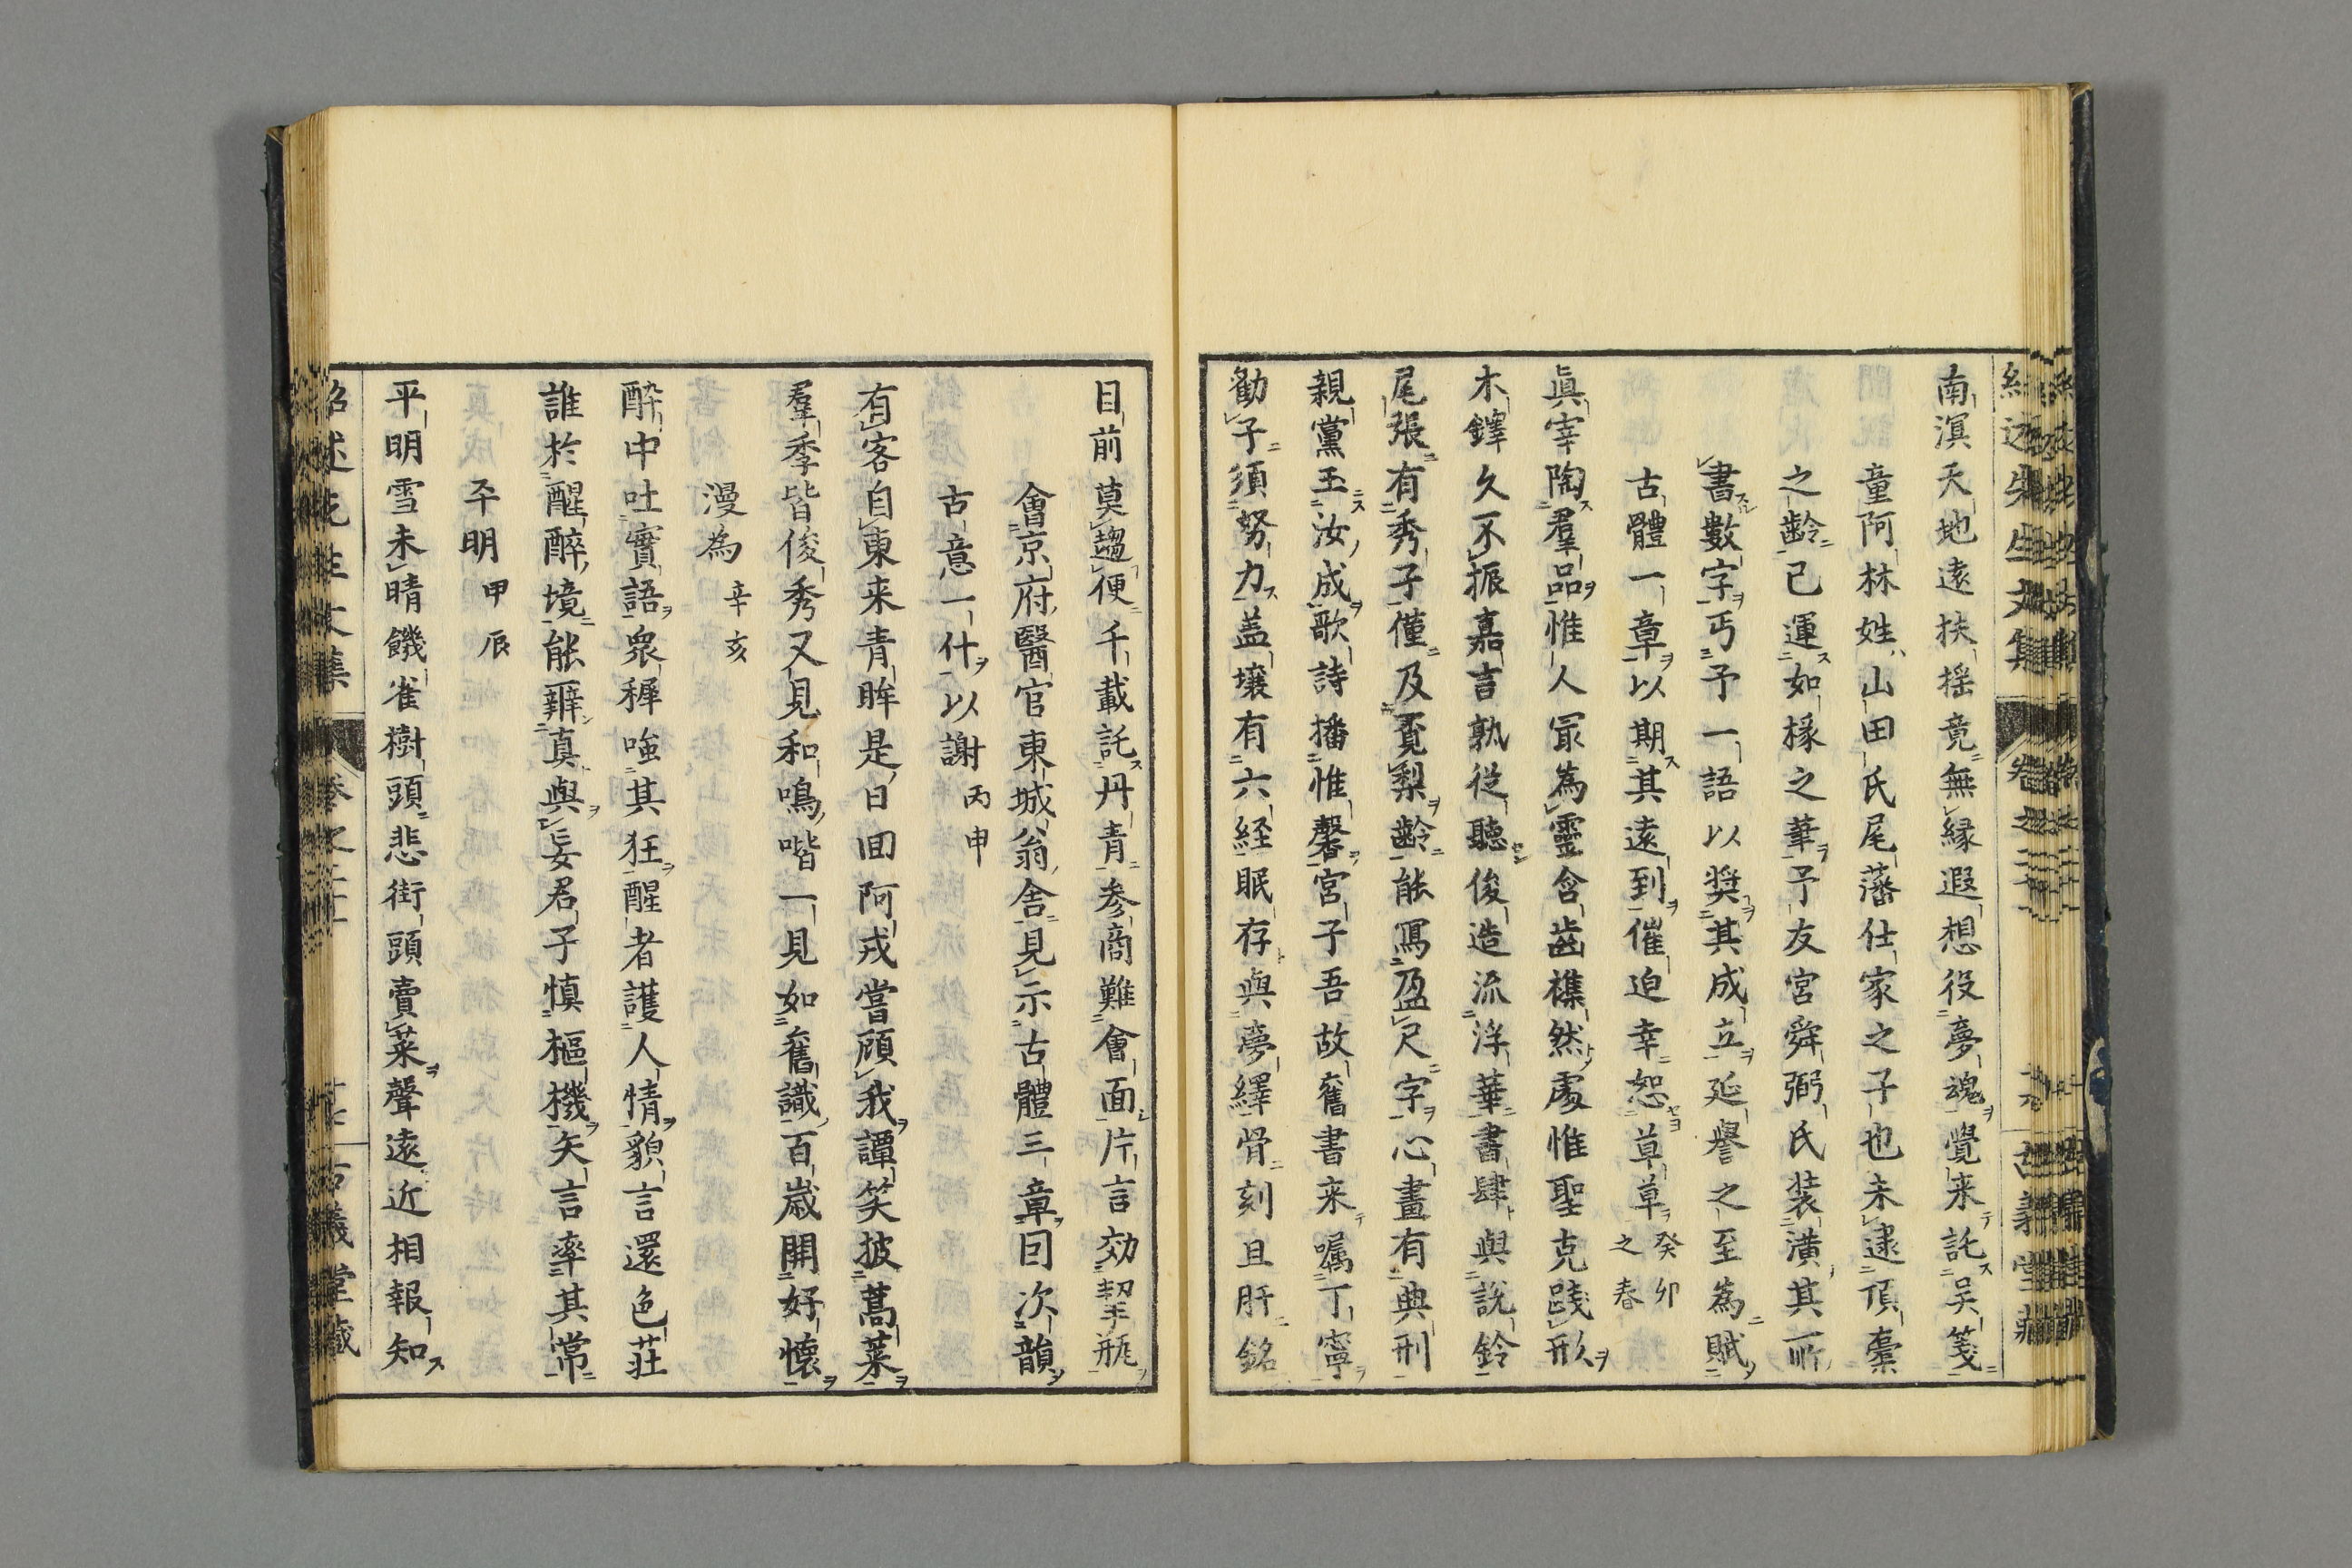 南溟天地遠扶揺竟無縁遐想役夢魂覺来託吴箋
童阿林姓山田氏尾藩仕家之子也未逮項橐
之齡已運如椽之筆予友宮舜弼氏装潢其所
書數字丐予一語以奨其成立延譽之至為賦
古體一章以期其遠到催迫幸恕草草癸卯之春
眞宰陶羣品惟人冣為靈含齒襍然處惟聖克踐形
木鐸久不振嘉言孰従聽俊造流浮華書肆與説鈴
尾張有秀子僅及覔梨齡能冩盈尺字心畫有典刑
親黨玉汝成歌詩播惟馨宮子吾故舊書来嘱丁寧
勧子須努力盖壌有六経眠存與夢繹骨刻且肝銘
目前莫趨便千載託丹青参商難會面片言効挈瓶
會京府醫官東城翁舎見示古體三章囙次韻
古意一什以謝丙申
有客自東来青眸是日囬阿戎當顧我譚笑披蒿莱
羣季皆俊秀又見和鳴喈一見如舊識百歳開好懐
漫為辛亥
酔中吐實語衆穉嗤其狂醒者護人情貌言還色荘
誰於醒酔境能辨真與妄君子慎樞機矢言率其常
平明甲辰
平明雪未晴饑雀樹頭悲街頭賣菜聲遠近相報知
紹述先生文集
古義堂藏